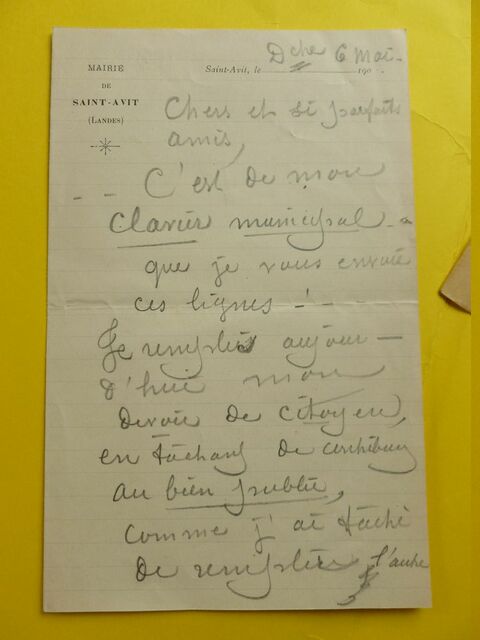 MAIRIE
DE
SAINT-AVIT
(LANDES)
Saint-Avit, le Dche 6 Mai 190
Chers et si parfaits
amis,
C'est de mon
clavier municipal
que je vous envoie
ces lignes !
Je remplis aujour-
d'hui mon
devoir de citoyen,
en tâchant de contribuer
au bien public,
comme j'ai tâché
de remplir l'autre